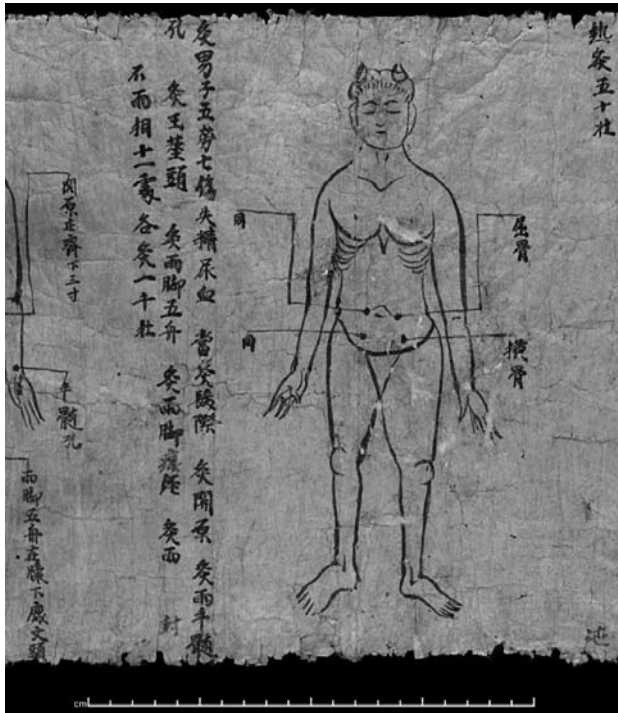 熱灸五十壯
屈骨
橫骨
同
同
灸男子五勞七傷失精尿血 當灸陵際 灸関原 灸兩手髓
孔 灸玉莖頭 灸兩脚五舟 灸兩脚 灸兩
兩相十一處 各灸一千壯
関原在齊下三寸
手髓孔
兩脚五舟在膝下麁文頭
cm